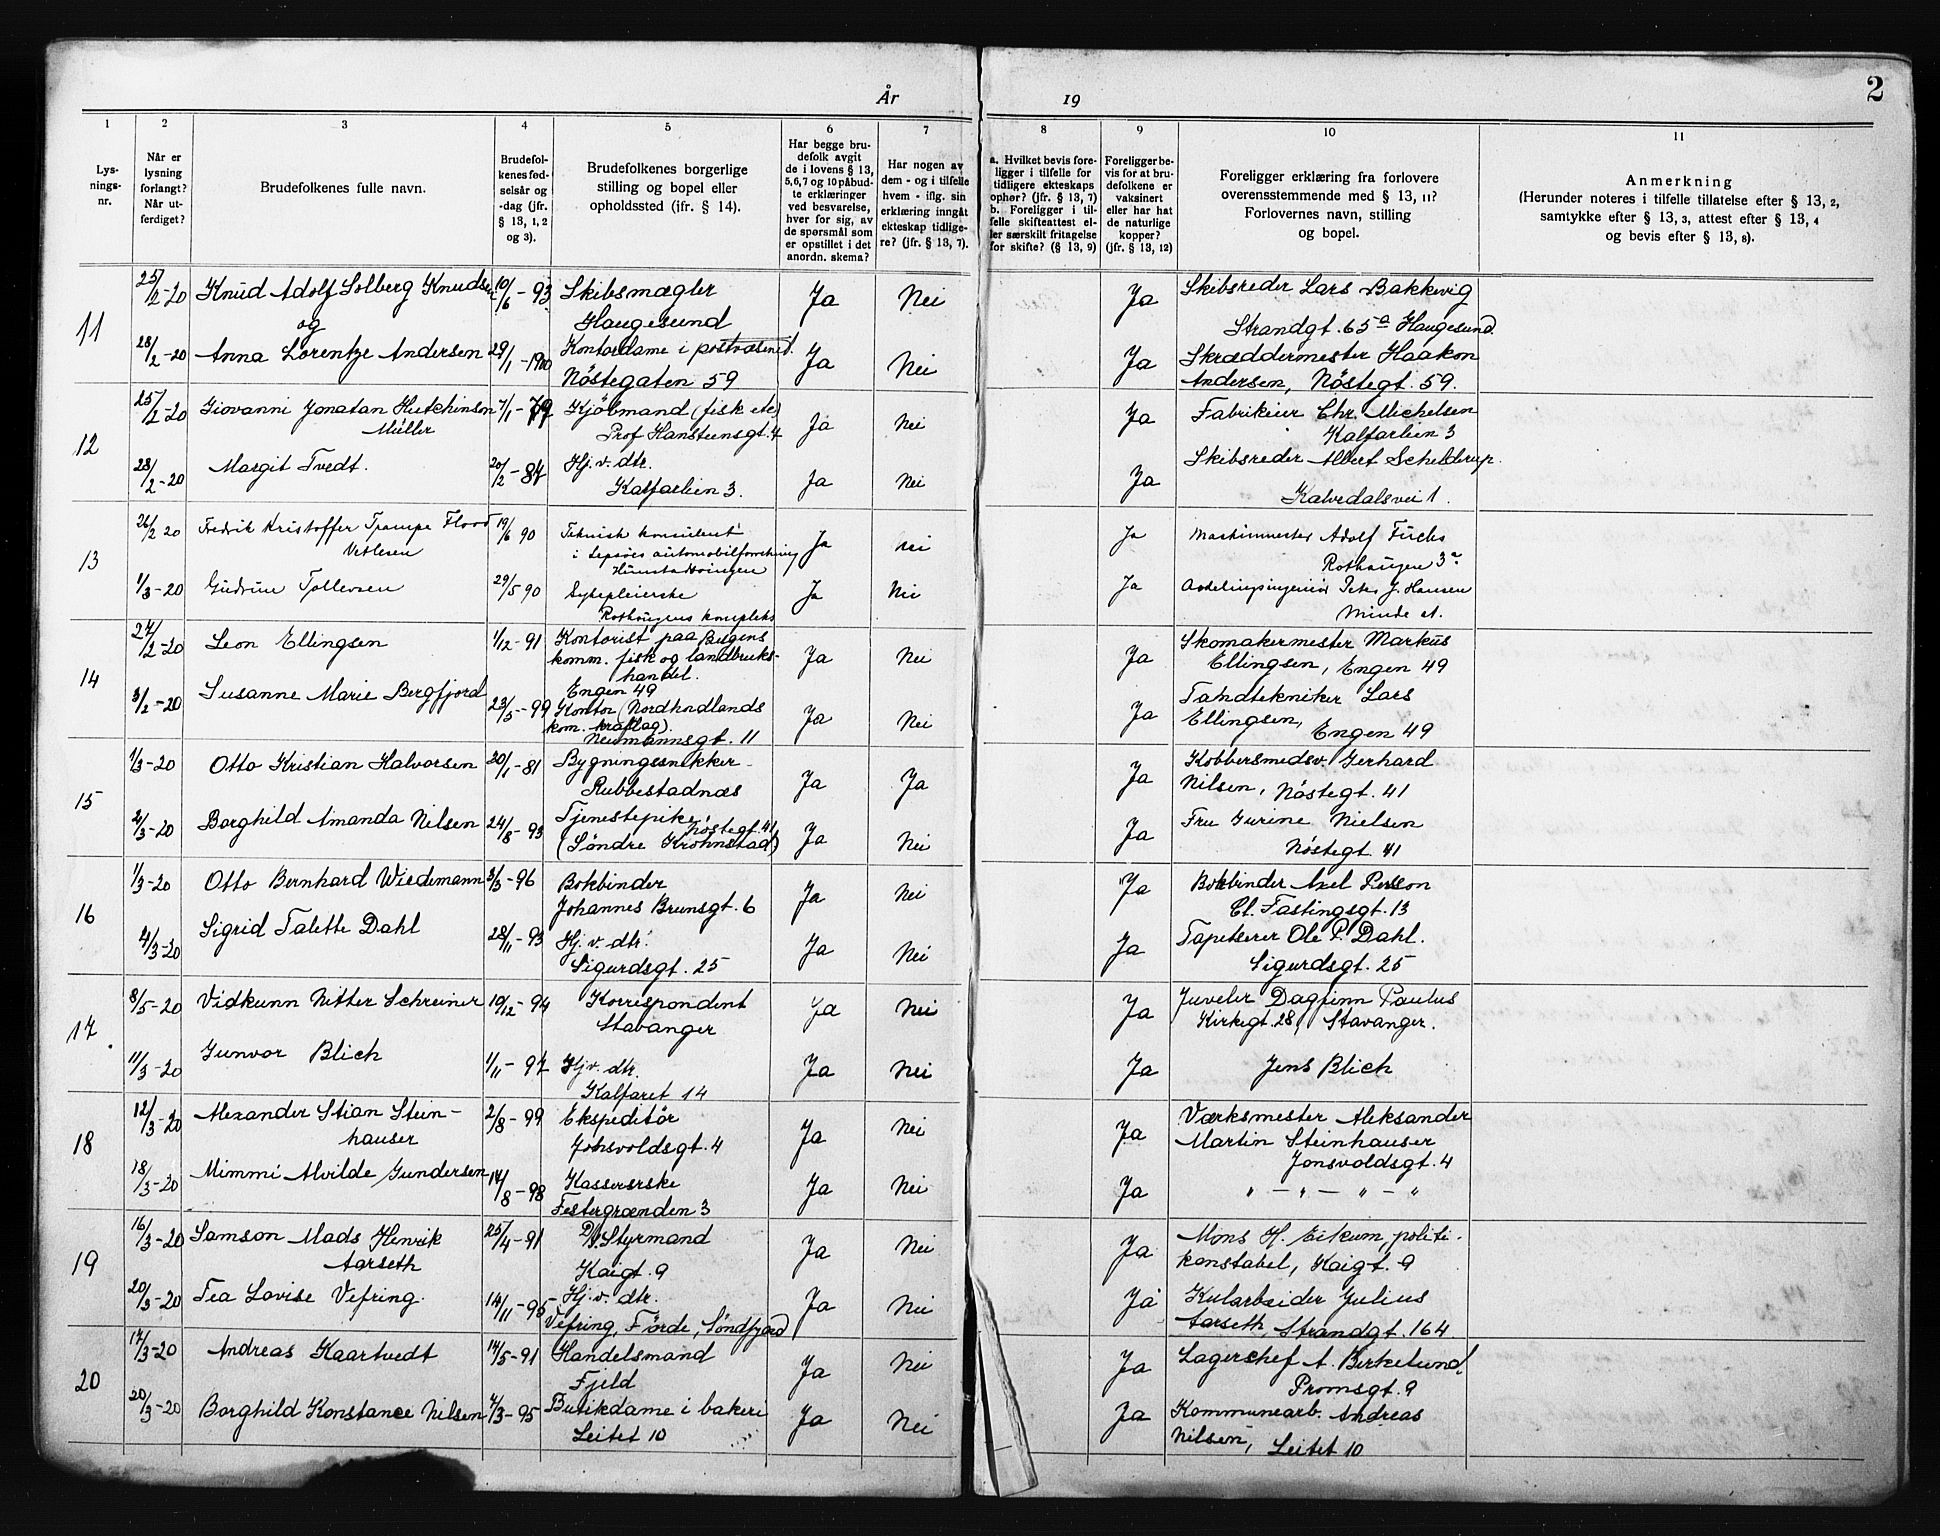 2
År
19
1
2
3
4
5
6
7
8
9
10
11
Lys-
nings-
nr.
Når er
lysning
forlangt?
Når ut-
ferdiget?
Brudefolkenes fulle navn.
Brudefol-
kenes fød-
selsår og
-dag (jfr.
§ 13, 1, 2
og 3).
Brudefolkenes borgerlige
stilling og bopel eller
opholdssted (ifr. § 14).
Har begge bru-
defolk avgit
de i lovens § 13,
5,6,7 og 10 påbud-
te erklæringer
ved besvarelse,
hver for sig, av
de spørsmål som
er opstillet i det
anordn. skema?
Har nogen av
dem - og i tilfelle
hvem - iflg. sin
erklæring inngåt
ekteskap tidlige-
re? (jfr. § 13, 7).
a. Hvilket bevis fore-
ligger i tilfelle for
tidligere ekteskaps
ophør? (jfr. § 13, 7)
b. Foreligger i til-
felle skifteattest el-
ler særskilt fritagelse
for skifte? (§ 13, 9)
Foreligger be-
vis for at bru-
defolkene er
vaksinert
eller har hat
de naturlige
kopper?
(jfr. § 13, 12)
Foreligger erklæring fra forlovere
overensstemmende med § 13, 11?
Forlovernes navn, stilling
og bopel.
Anmerkning
(Herunder noteres i tilfelle tillatelse efter § 13, 2,
samtykke efter § 13, 3, attest efter § 13, 4
og bevis efter § 13, 8).
11
25/2-20 Knud Adolf Solberg Knudsen 10/6-93 Skibsmægler Ja Nei Ja Skibsreder Lars Bakkevig
og Haugesund Strandgt. 65a Haugesund.
28/2-20 Anna Lorentze Andersen 29/1-1900 Kontordame i postvæsenet. Ja Nei Ja Skræddermester Haakon
Nöstegaten 59 Andersen, Nöstegt. 59.
12
25/2-20 Giovanni Jonatan Hutchinson 7/1-79 Kjöbmand (fisk etc) Ja Nei Ja Fabrikeier Chr. Michelsen
Müller Prof Hansteensgt. 4 Kalfarlien 3
28/2-20 Margit Tvedt. 20/2-87 Hj. v. dtr. Ja Nei Ja Skibsreder Albert Schelderup.
Kalfarlien 3. Kalvedalsvei 1.
13
26/2 20 Fredrik Kristoffer Trampe Flood 19/6 90 Teknisk konsulent Ja Nei Ja Maskinmester Adolf Fuchs
Vetlesen i Lepsøes automobilforretning Rothaugen 3a
1/3-20 Gudrun Tollevsen 29/5 90 Sykepleierske Ja Nei Ja Avdelingsingeniør Peter J. Hansen
Rothaugens kompleks Minde st.
14
27/2-20 Leon Ellingsen 1/12-91 Kontorist paa Bergens Ja Nei Ja Skomakermester Markus
komm. fisk og landbruks- Ellingsen, Engen 49
handel.
Engen 49
3/2-20 Susanne Marie Bergfjord 23/5-99 Kontor (Nordhordlands Ja Nei Ja Tandtekniker Lars
kom. kraftlag) Ellingsen,
Neumannsgt. 11 Engen 49
15
1/3-20 Otto Kristian Halvorsen 30/1-81 Bygningssnekker Ja Ja Ja Kobbersmedsv. Gerhard
Rubbestadnæs Nilsen, Nöstegt. 41
2/3-20 Borghild Amanda Nilsen 24/8-93 Tjenestepike, Nöstegt. 41 Ja Nei Ja Fru Gurine Nielsen
(Söndre Krohnstad) Nöstegt. 41
16
1/3-20 Otto Bernhard Wiedemann 3/3-96 Bokbinder Ja Nei Ja Bokbinder Axel Persson
Johannes Brunsgt. 6 Cl. Fastingsgt. 13
4/3-20 Sigrid Talette Dahl 28/11-93 Hj. v. dtr. Ja Nei Ja Tapetserer Ole P. Dahl.
Sigurdsgt. 25 Sigurdsgt. 25
17
8/5-20 Vidkunn Nitter Schreiner 10/12-94 Korrespondent Ja Nei Ja Juveler Dagfinn Paulus
Stavanger Kirkegt. 28, Stavanger.
11/3-20 Gunvor Blich 1/11-97 Hj v. dtr. Ja Nei Ja Jens Blich
Kalfaret 14
18
12/3-20 Alexander Stian Stein- 2/8-99 Ekspeditör Ja Nei Ja Værksmester Aleksander
hauser Jonsvoldsgt. 4 Martin Steinhauser
Jonsvoldsgt. 4
18/3-20 Mimmi Alvilde Gundersen 14/8-98 Kassererske Ja Nei Ja " - " - " - "
Festergrænden 3
19
16/3-20 Samson Mads Henrik 25/4-91 Styrmand Ja Nei Ja Mons H. Eikum, politi-
Aarseth Kaigt. 9 konstabel, Kaigt. 9
20/3-20 Tea Lovise Vefring. 14/11-95 Hj. v. dtr. Ja Nei Ja Kularbeider Julius
Vefring, Förde, Söndfjord Aarseth, Strandgt. 164
20
17/3-20 Andreas Kaartvedt 14/5-91 Handelsmand Ja Nei Ja Lagerchef A. Birkelund,
Fjeld Promsgt. 9
20/3-20 Borghild Konstance Nilsen 7/3-95 Butikdame i bakeri Ja Nei Ja Kommunearb. Andreas
Leitet 10 Nilsen, Leitet 10